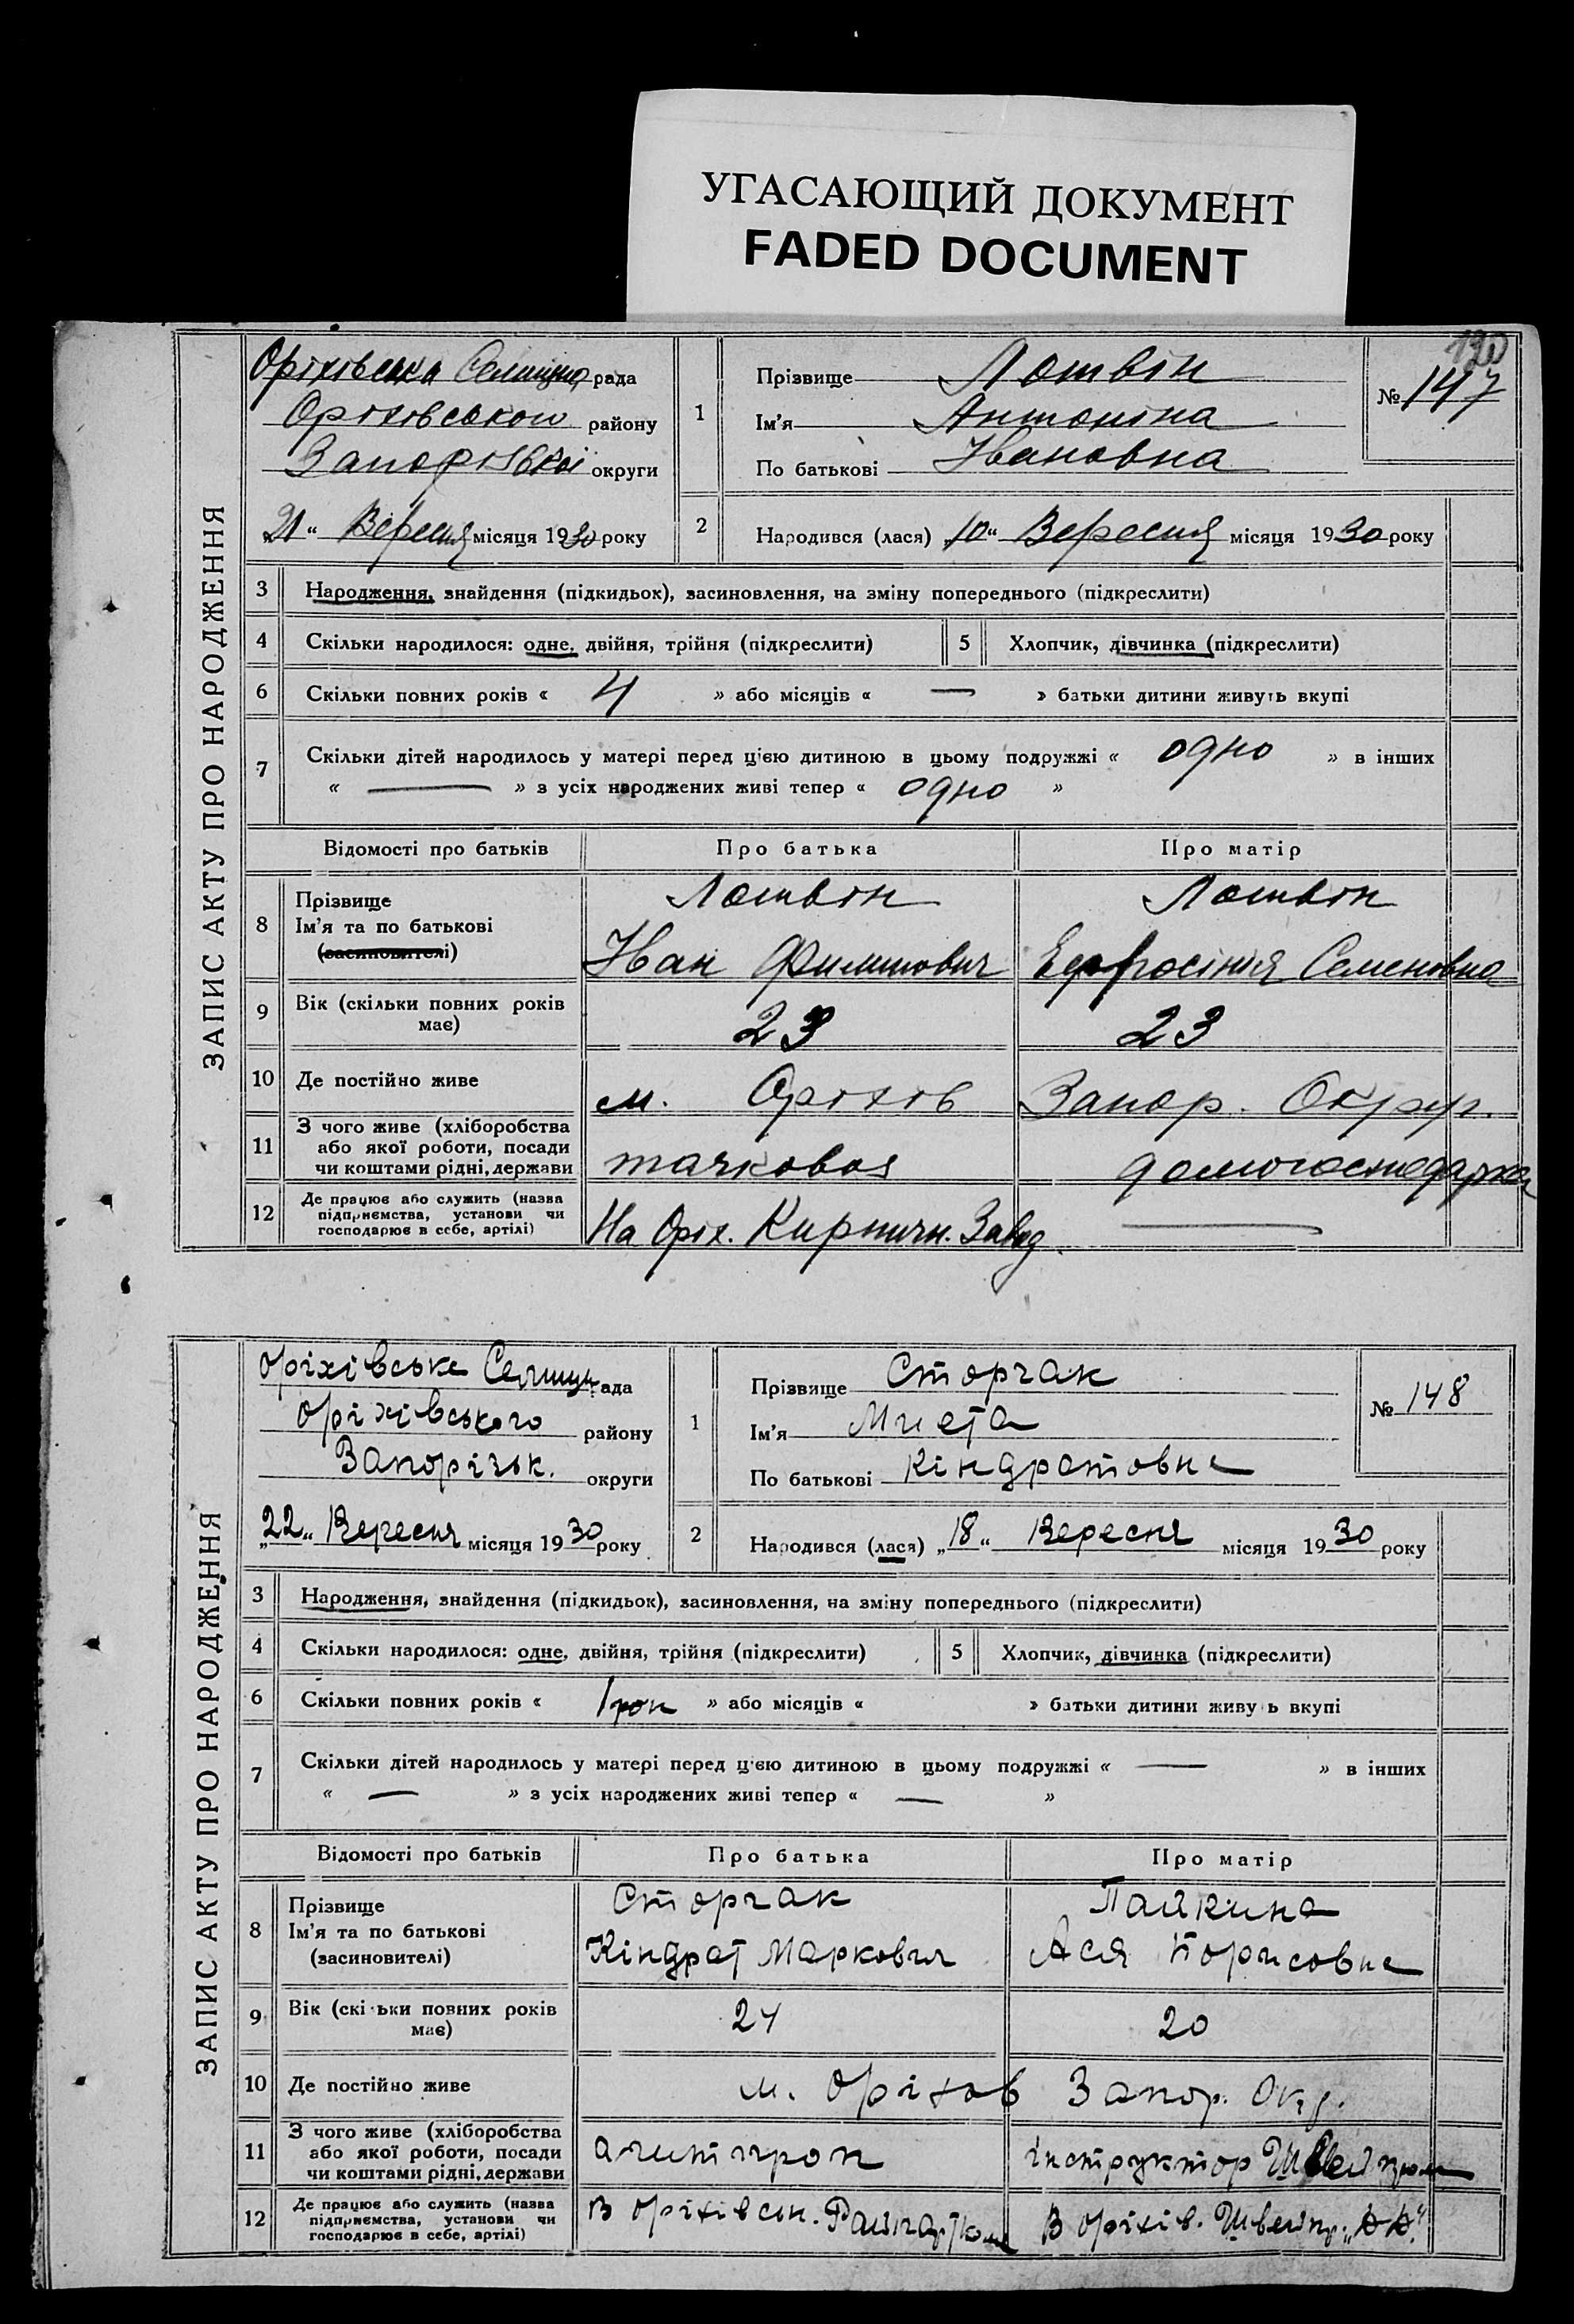 УГАСАЮЩИЙ ДОКУМЕНТ
FADED DOCUMENT
120
ЗАПИС АКТУ ПРО НАРОДЖЕННЯ
Оріхівська Селищна рада
Оріхівського району
Запорізької округи
„21“ Вересня місяця 1930 року
1
Прізвище Лотвін
Ім'я Антоніна
По батькові Івановна
№ 147
2
Народився (лася) „10“ Вересня місяця 1930 року
3 Народження, знайдення (підкидьок), засиновлення, на зміну попереднього (підкреслити)
4 Скільки народилося: одне, двійня, трійня (підкреслити) 5 Хлопчик, дівчинка (підкреслити)
6 Скільки повних років « 4 » або місяців « — » батьки дитини живуть вкупі
7 Скільки дітей народилось у матері перед цією дитиною в цьому подружжі « одно » в інших
« — » з усіх народжених живі тепер « одно »
Відомості про батьків Про батька Про матір
8 Прізвище
Ім'я та по батькові
(засиновителі)
Лотвін Лотвін
Іван Филипович Ефросінія Семеновна
9 Вік (скільки повних років
має)
23 23
10 Де постійно живе м. Оріхів Запор. Округ.
11 З чого живе (хліборобства
або якої роботи, посади
чи коштами рідні, держави
тачковоз домогосподарка
12 Де працює або служить (назва
підприємства, установи чи
господарює в себе, артілі)
На Оріх. Кирпичн. Завод. —
ЗАПИС АКТУ ПРО НАРОДЖЕННЯ
Оріхівська Селищн рада
Оріхівського району
Запорізьк. округи
„22“ Вересня місяця 1930 року
1
Прізвище Сторчак
Ім'я
По батькові Кіндратовна
№ 148
2
Народився (лася) „18“ Вересня місяця 1930 року
3 Народження, знайдення (підкидьок), засиновлення, на зміну попереднього (підкреслити)
4 Скільки народилося: одне, двійня, трійня (підкреслити) 5 Хлопчик, дівчинка (підкреслити)
6 Скільки повних років « 1 рок » або місяців « » батьки дитини живу ь вкупі
7 Скільки дітей народилось у матері перед цією дитиною в цьому подружжі « — » в інших
« — » з усіх народжених живі тепер « — »
Відомості про батьків Про батька Про матір
8 Прізвище
Ім'я та по батькові
(засиновителі)
Сторчак
Кіндрат Маркович Ася Борисовна
9 Вік (скільки повних років
має)
24 20
10 Де постійно живе м. Оріхов Запор. Окр.
11 З чого живе (хліборобства
або якої роботи, посади
чи коштами рідні, держави
агитпроп інструктор
12 Де працює або служить (назва
підприємства, установи чи
господарює в себе, артілі)
В Оріхівськ. Райпарткомі В Оріхів.